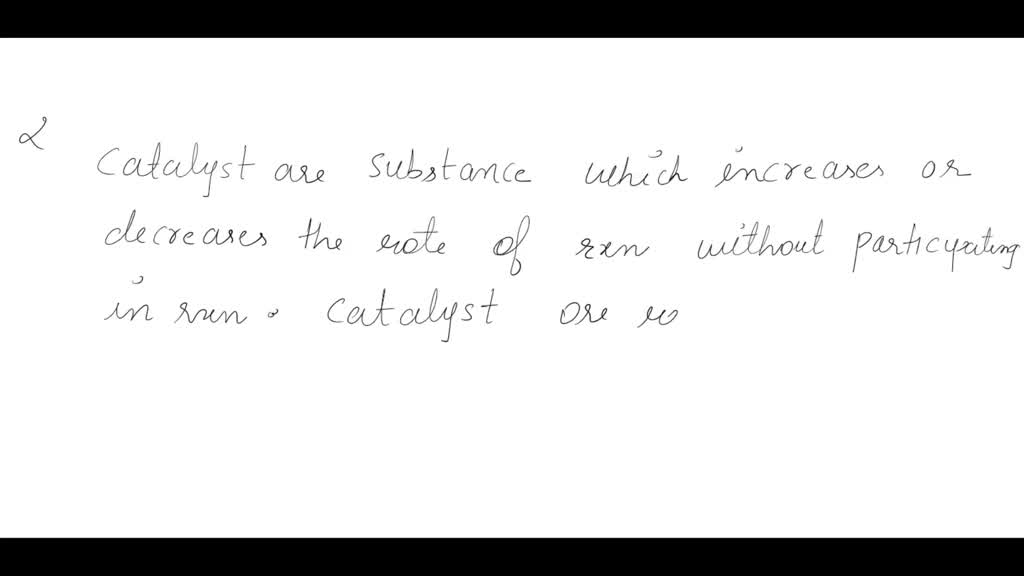 2
Catalyst are substance which increases or
decreases the rate of rxn without participating
in rxn. Catalyst are